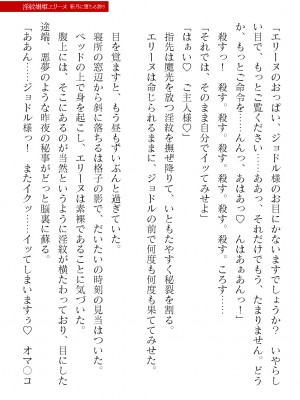 淫紋姫姫エリーヌ 新月に堕ちる誇り
「エリーヌのおっぱい、ジョドル様のお目にかないますでしょうか? いやらし
い、もっとご覧ください……ああっ、それだけでもう、たまりません。どう
か、もっとご命令を……んんっ、あはあっ♡ んはぁぁんっ!」
殺すっ! 殺す。殺す。殺す。殺す。殺す。ころす……
「それでは、そのまま自分でイッてみせよ」
「はぁい♡ ご主人様♡」
指先は魔光を放つ淫紋を撫ぜ降りて、いともたやすく秘裂を割る。
エリーヌは命じられるままに、ジョドルの前で何度も何度も果ててみせた。
目を覚ますと、もう昼もずいぶんと過ぎていた。
寝所の窓辺から斜に落ちるは格子の影で、だいたいの時刻の見当はついた。
ベッドの上で身を起こし、エリーヌは素裸であることに気づいた。
腹上には、そこにあるのが当然というように淫紋が横たわっており、目にした
途端、悪夢のような昨夜の秘事がどっと脳裏に蘇る。
「ああん……ジョドル様っ また イクッ、イッてしまいますぅ♡ オマ◯コ